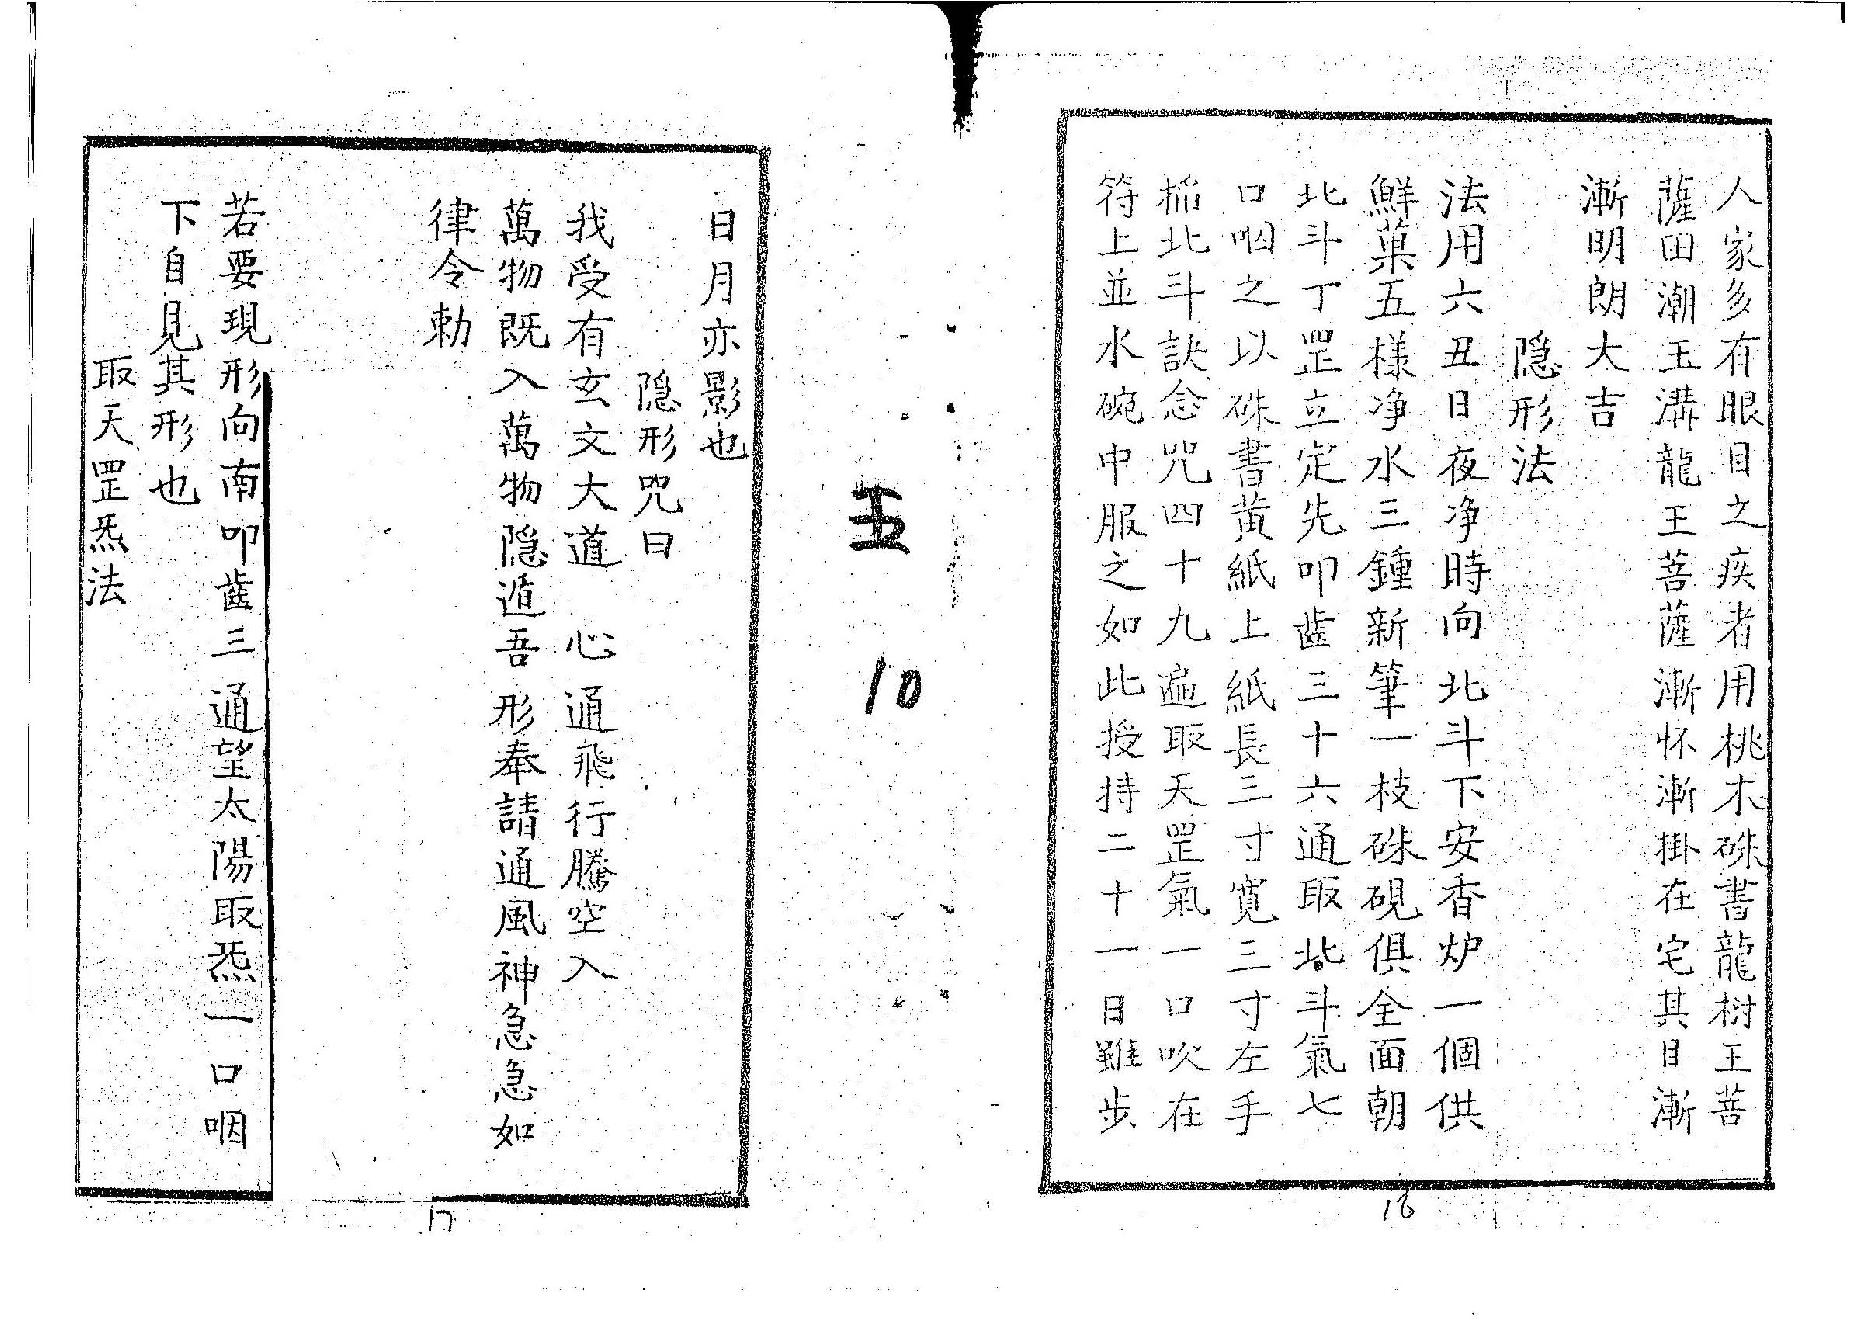 人家多有眼目之疾者用桃木硃書龍樹王菩
薩田潮玉溝龍王菩薩漸怀漸掛在宅其目漸
漸明朗大吉
隐形法
法用六丑日夜净時向北斗下安香炉一個供
鮮菓五樣净水三鍾新筆一枝硃硯俱全面朝
北斗丁罡立定先叩齿三十六通取北斗氣七
口咽之以硃書黄紙上紙長三寸寬三寸左手
掐北斗訣念咒四十九遍取天罡氣一口吹在
符上並水碗中服之如此授持二十一日雖步
16
日月亦影也
隐形咒曰
我受有玄文大道 心通飛行騰空入
萬物既入萬物隐遁吾形奉請通風神急急如
律令勅
若要現形向南叩齒三通望太陽取炁一口咽
下自見其形也
取天罡炁法
17
五
10